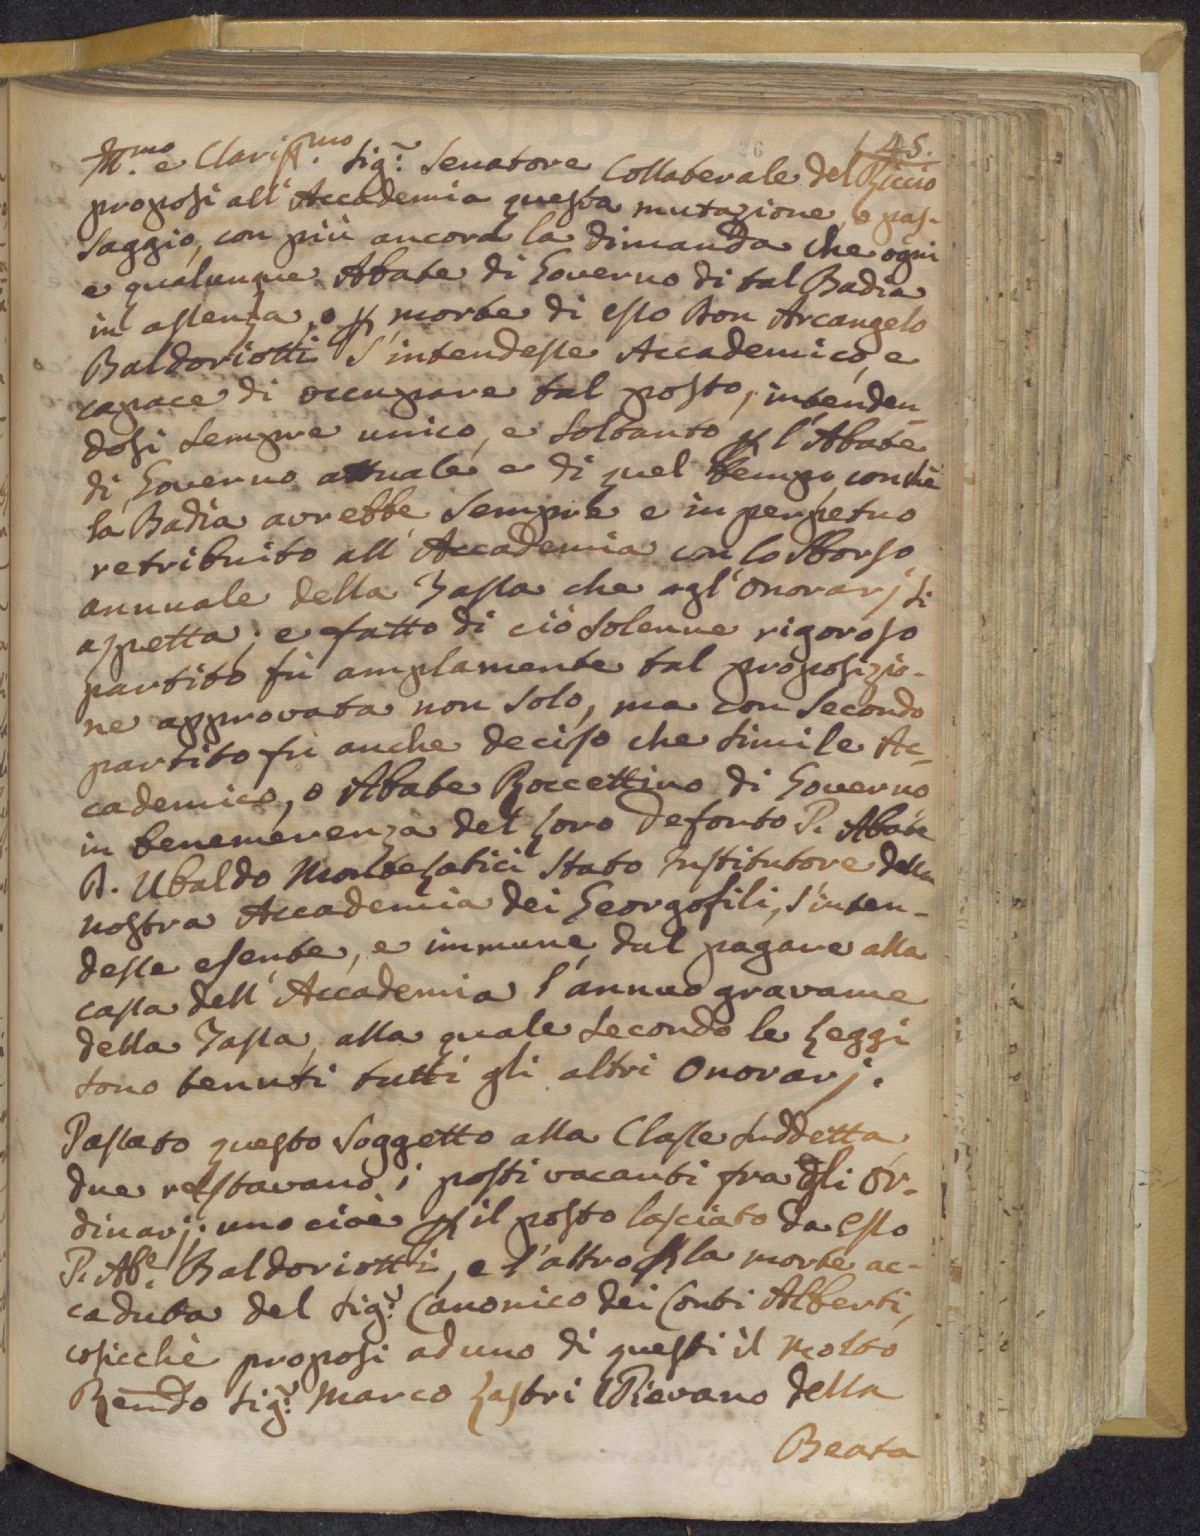 45.
26
Ill.mo e Clariss.mo Sig.r Senatore Collaterale Del Riccio
proposi all'Accademia questa mutazione, o pas-
saggio, con più ancora la dimanda che ogni
e qualunque Abate di Governo di tal Badia
in assenza, o p morte di esso Don Arcangelo
Baldoriotti s'intendesse Accademico, e
capace di occupare tal posto, intenden-
dosi sempre unico, e soltanto p l'Abate
di Governo attuale e di quel tempo, con che
la Badia avrebbe sempre e in perpetuo
retribuito all'Accademia con lo sborso
annuale della Tassa che agl'Onorarj si
aspetta; e fatto di ciò solenne rigoroso
partito fù amplamente tal proposizio-
ne approvata non solo, ma con secondo
partito fù anche deciso che simile Ac-
cademico, o Abate Roccettino di Governo
in benemerenza del loro defonto P. Abate
D. Ubaldo Montelatici stato Institutore della
nostra Accademia dei Georgofili, s'inten-
desse esente, e immune dal pagare alla
cassa dell'Accademia l'annuo gravame
della Tassa, alla quale secondo le Leggi
sono tenuti tutti gli altri Onorarj.
Passato questo soggetto alla Classe suddetta
due restavano i posti vacanti fra gli Or-
dinarj; uno cioè p il posto lasciato da esso
P. Ab.e Baldoriotti, e l'altro p la morte ac-
caduta del Sig.r Canonico dei Conti Alberti,
cosicchè proposi ad uno di questi il Molto
Rendo Sig.r Marco Lastri Pievano della
Beata